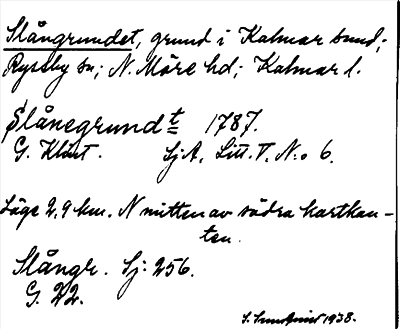 Slångrundet, grund i Kalmar sund;
Ryssby sn; N. Möre hd; Kalmar l.
Slånegrundt 1787.
G. Klint. Sj A, Litt. V. N:o 6.
Läge 2,9 km. N mitten av södra kartkan-
ten.
Slångr. Sj: 256.
G. 22.
S. 1938.